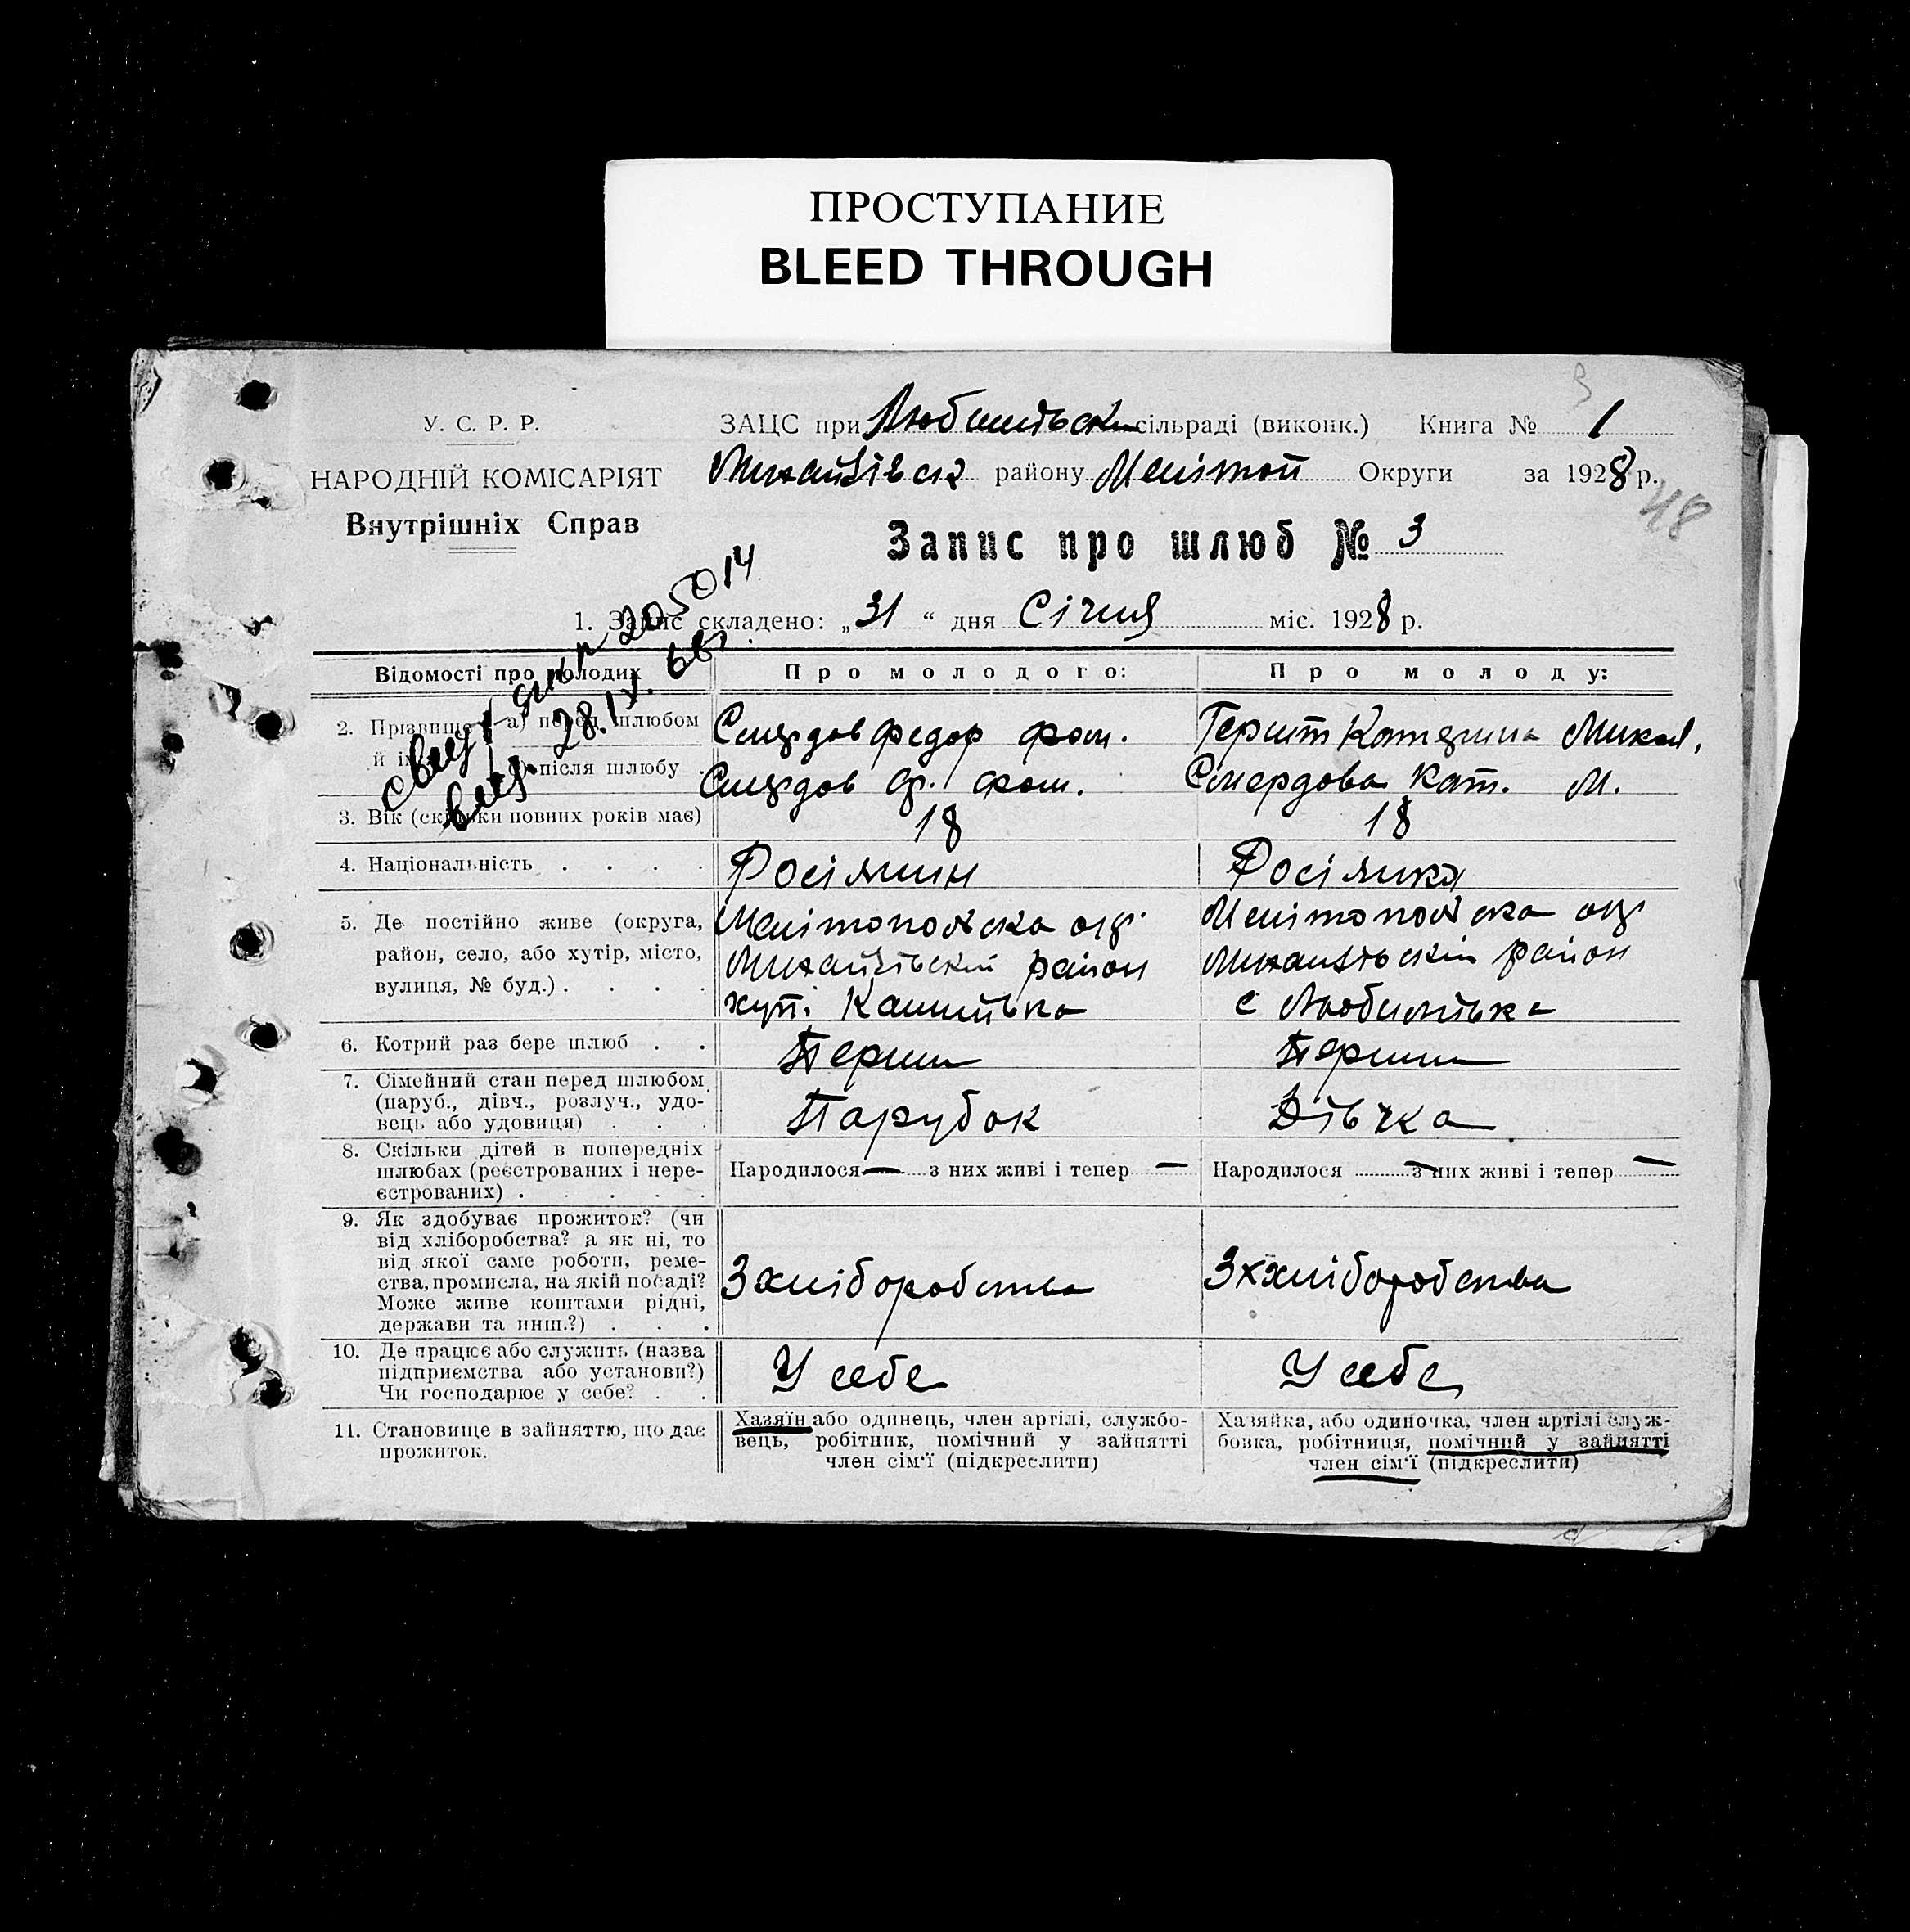 ПРОСТУПАНИЕ
BLEED THROUGH
У. С. Р. Р.
НАРОДНІЙ КОМІСАРІЯТ
Внутрішніх Справ
ЗАЦС при Любимівськ сільраді (виконк.) Книга № 1
Михайлівск району Мелітоп Округи за 1928 р.
48
Запис про шлюб № 3
1. Запис складено: „31“ дня Січня міс. 1928 р.
205014
28.IX. 66
Відомості про молодих
Про молодого:
Про молоду:
2. Прізвище й ім а) перед шлюбом
Смердов Федор Фом.
Герит Катерина Микол.
після шлюбу
Смердов Ф. Фом.
Смердова Кат. М.
3. Вік (скільки повних років має)
18
18
4. Національність . . . .
Росіянин
Росіянка
5. Де постійно живе (округа, район, село, або хутір, місто, вулиця, № буд.) . . . .
Мелітопольска окр
Михайлівский район
хут.
Мелітопольска окр
Михайлівский район
с Любимівка
6. Котрий раз бере шлюб . .
Перши
Перший
7. Сімейний стан перед шлюбом
(паруб., дівч., розлуч., удо-
вець або удовиця) . . .
Парубок
Дівчка
8. Скільки дітей в попередніх
шлюбах (реєстрованих і нере-
єстрованих) . . . . .
Народилося — з них живі і тепер —
Народилося — з них живі і тепер —
9. Як здобуває прожиток? (чи
від хліборобства? а як ні, то
від якої саме роботи, реме-
ства, промисла, на якій посаді?
Може живе коштами рідні,
держави та инш.?) . . .
З хліборобства
З хліборобства
10. Де працює або служить (назва
підприємства або установи?)
Чи господарює у себе? . .
У себе
У себе
11. Становище в зайняттю, що дає
прожиток.
Хазяїн або одинець, член артілі, службо-
вець, робітник, помічний у зайнятті
член сім'ї (підкреслити)
Хазяйка, або одиночка, член артілі служ-
бовка, робітниця, помічний у зайнятті
член сім'ї (підкреслити)